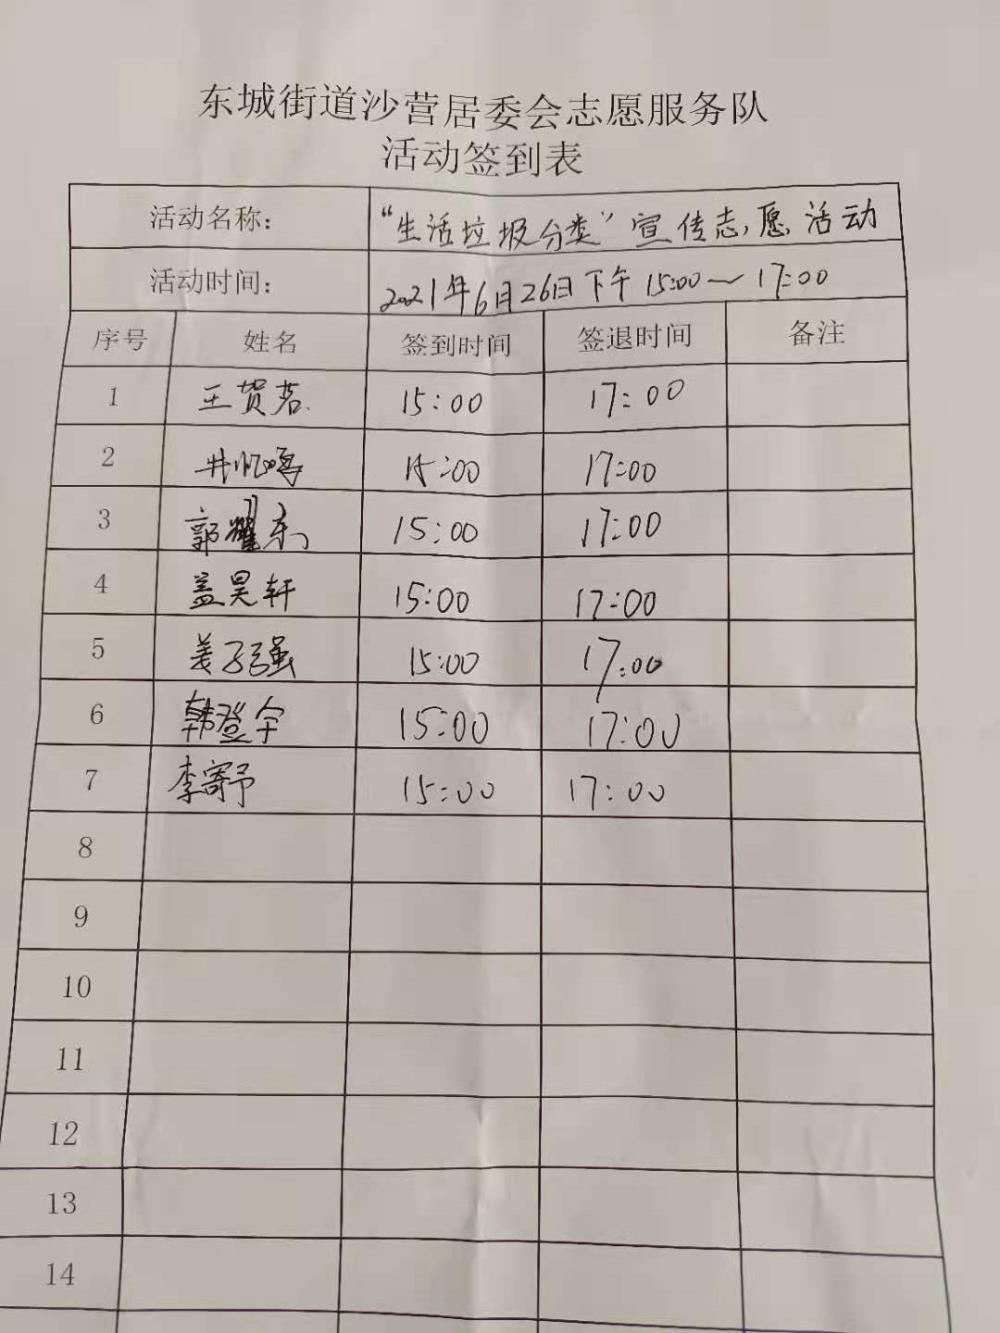 东城街道沙营居委会志愿服务队
活动签到表
活动名称: “生活垃圾分类”宣传志愿活动
活动时间: 2021年6月26日下午 15:00~17:00
序号 姓名 签到时间 签退时间 备注
1 王贺茗 15:00 17:00
2 井 鸣 15:00 17:00
3 郭耀东 15:00 17:00
4 盖昊轩 15:00 17:00
5 姜子强 15:00 17:00
6 韩登宇 15:00 17:00
7 李寄予 15:00 17:00
8
9
10
11
12
13
14